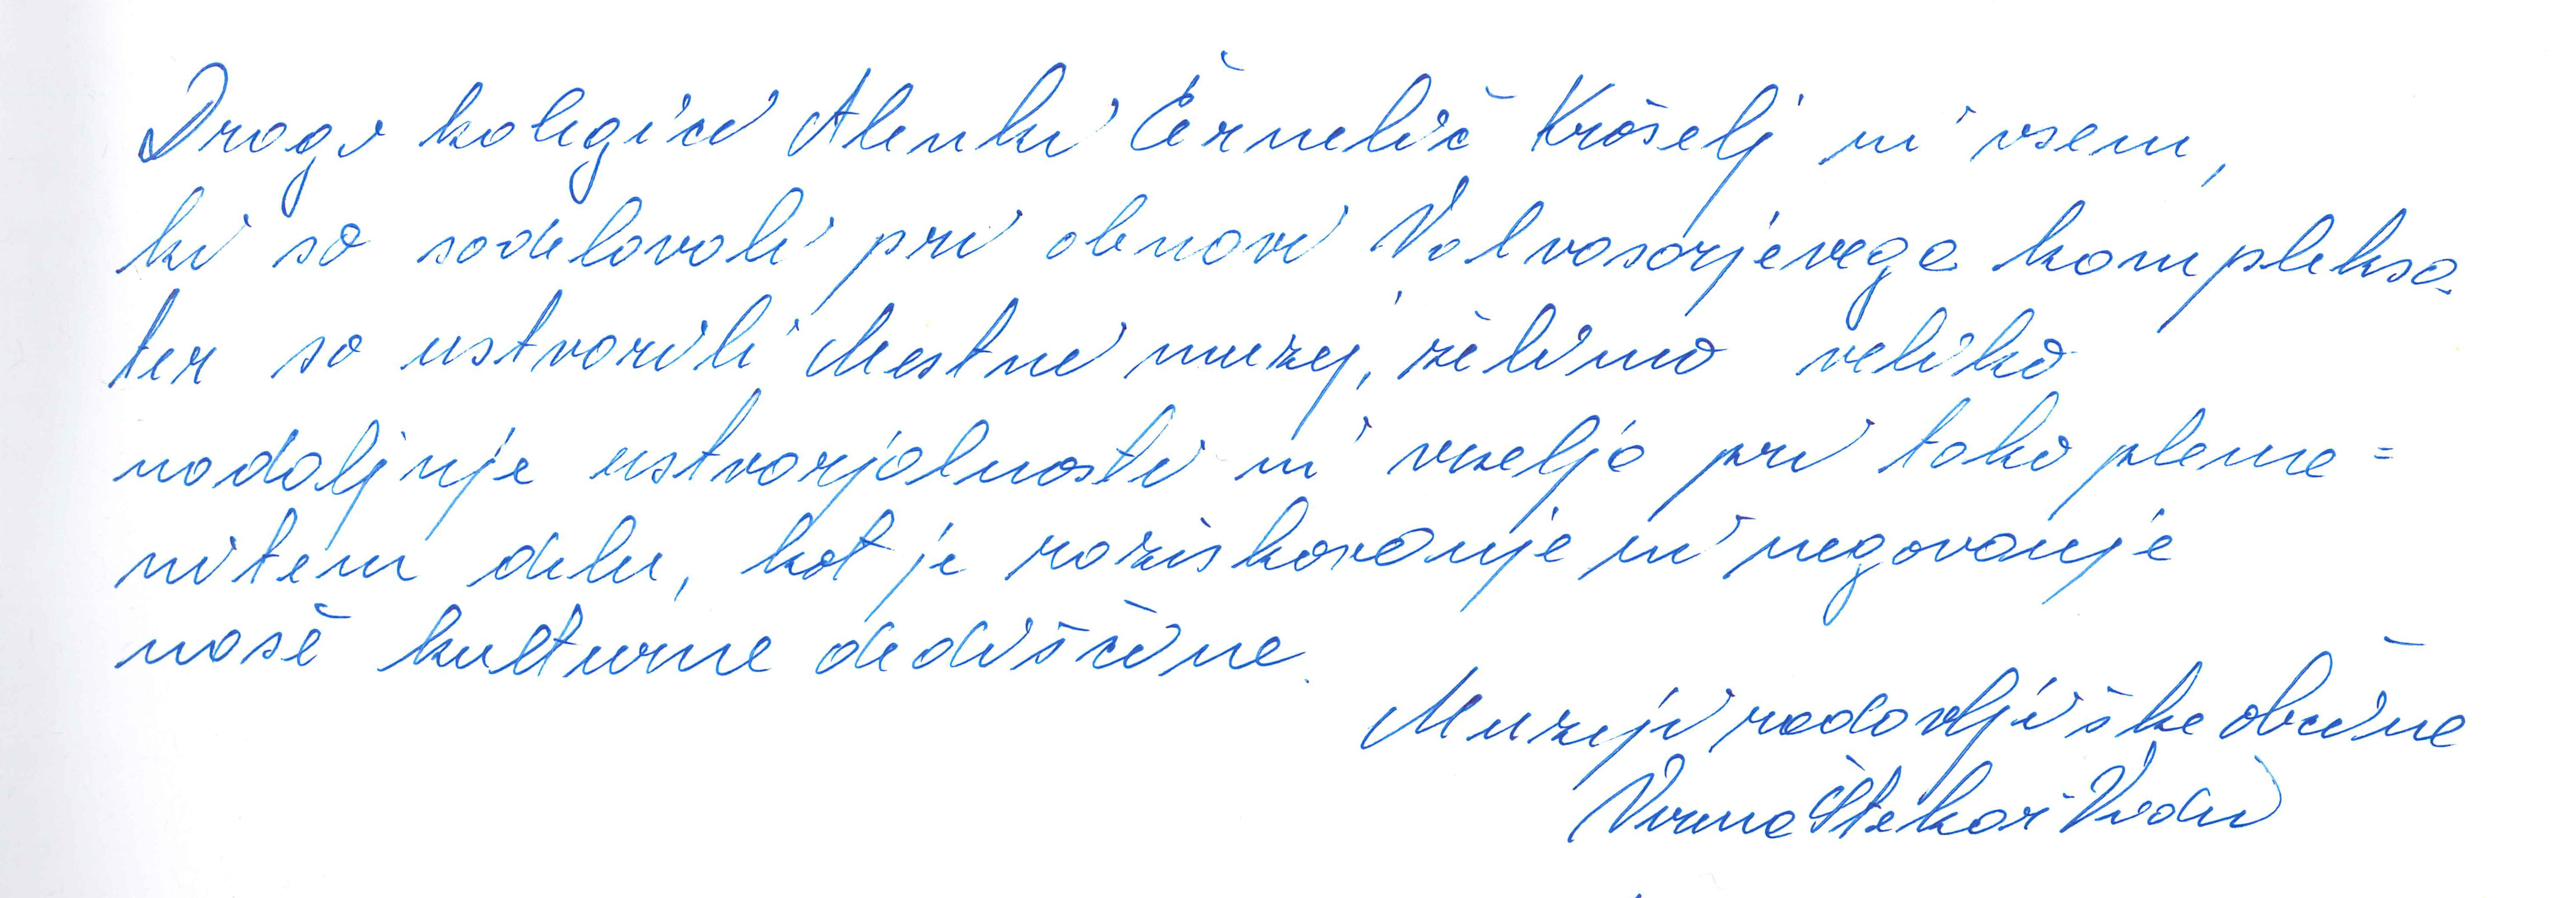 Dragi kolegici Alenki Černelič Krošelj in vsem,
ki so sodelovali pri obnovi Valvasorjevega kompleksa
ter so ustvarili Mestni muzej, želimo veliko
nadaljnje ustvarjalnosti in veselja pri tako pleme=
nitem delu, kot je raziskovanje in negovanje
naše kulturne dediščine.
Muzeji radovljiške občine
Verena Štekar-Vidic